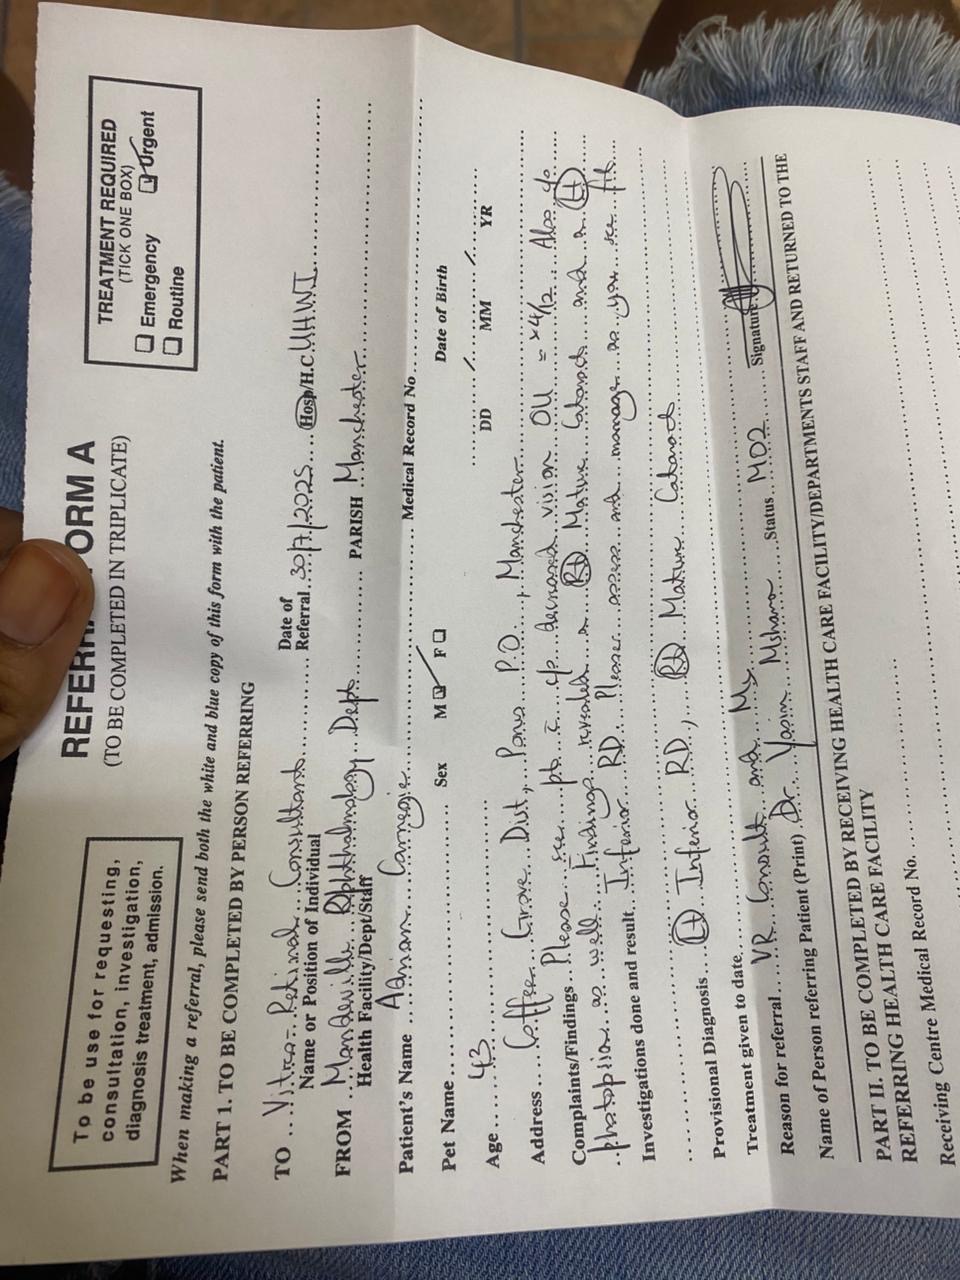 To be use for requesting,
consultation, investigation,
diagnosis treatment, admission.
REFERRAL FORM A
(TO BE COMPLETED IN TRIPLICATE)
TREATMENT REQUIRED
(TICK ONE BOX)
☐ Emergency ☑ Urgent
☐ Routine
When making a referral, please send both the white and blue copy of this form with the patient.
PART 1. TO BE COMPLETED BY PERSON REFERRING
TO Vitreo-Retinal Consultant Date of Referral 30/7/2025 Hosp/H.C. UHWI
Name or Position of Individual
FROM Mandeville Ophthalmology Dept PARISH Manchester
Health Facility/Dept/Staff
Patient's Name Adrian Carnegie Medical Record No
Pet Name Sex M ☑ F ☐ Date of Birth
Age 43 / /
DD MM YR
Address Coffee Grove Dist, P.O, Manchester
Complaints/Findings Please see pt c̄ c/o decreased vision OU x4/12 Also c/o
photopsias as well. Findings revealed a Rt Mature Cataract and a Lt
Investigations done and result Inferior RD Please assess and manage as you see fit
Provisional Diagnosis Lt Inferior RD, Rt Mature Cataract
Treatment given to date
Reason for referral VR Consult and Mx
Name of Person referring Patient (Print) Dr Yasin Mshana Status MO2 Signature
PART II. TO BE COMPLETED BY RECEIVING HEALTH CARE FACILITY/DEPARTMENTS STAFF AND RETURNED TO THE
REFERRING HEALTH CARE FACILITY
Receiving Centre Medical Record No.